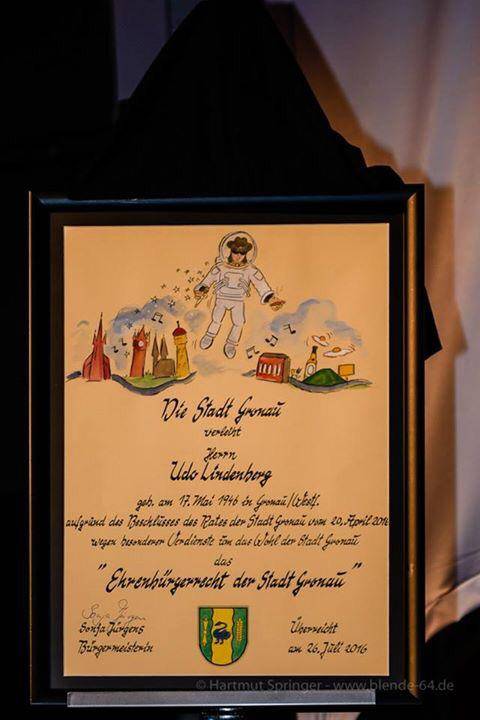 Die Stadt Gronau
verleiht
Herrn
Udo Lindenberg
geb. am 17. Mai 1946 in Gronau/Westf.
aufgrund des Beschlusses des Rates der Stadt Gronau vom 20. April 2016
wegen besonderer Verdienste um das Wohl der Stadt Gronau
das
"Ehrenbürgerrecht der Stadt Gronau"
Sonja Jürgens
Sonja Jürgens
Bürgermeisterin
Überreicht
am 26. Juli 2016
© Hartmut Springer - www.blende-64.de